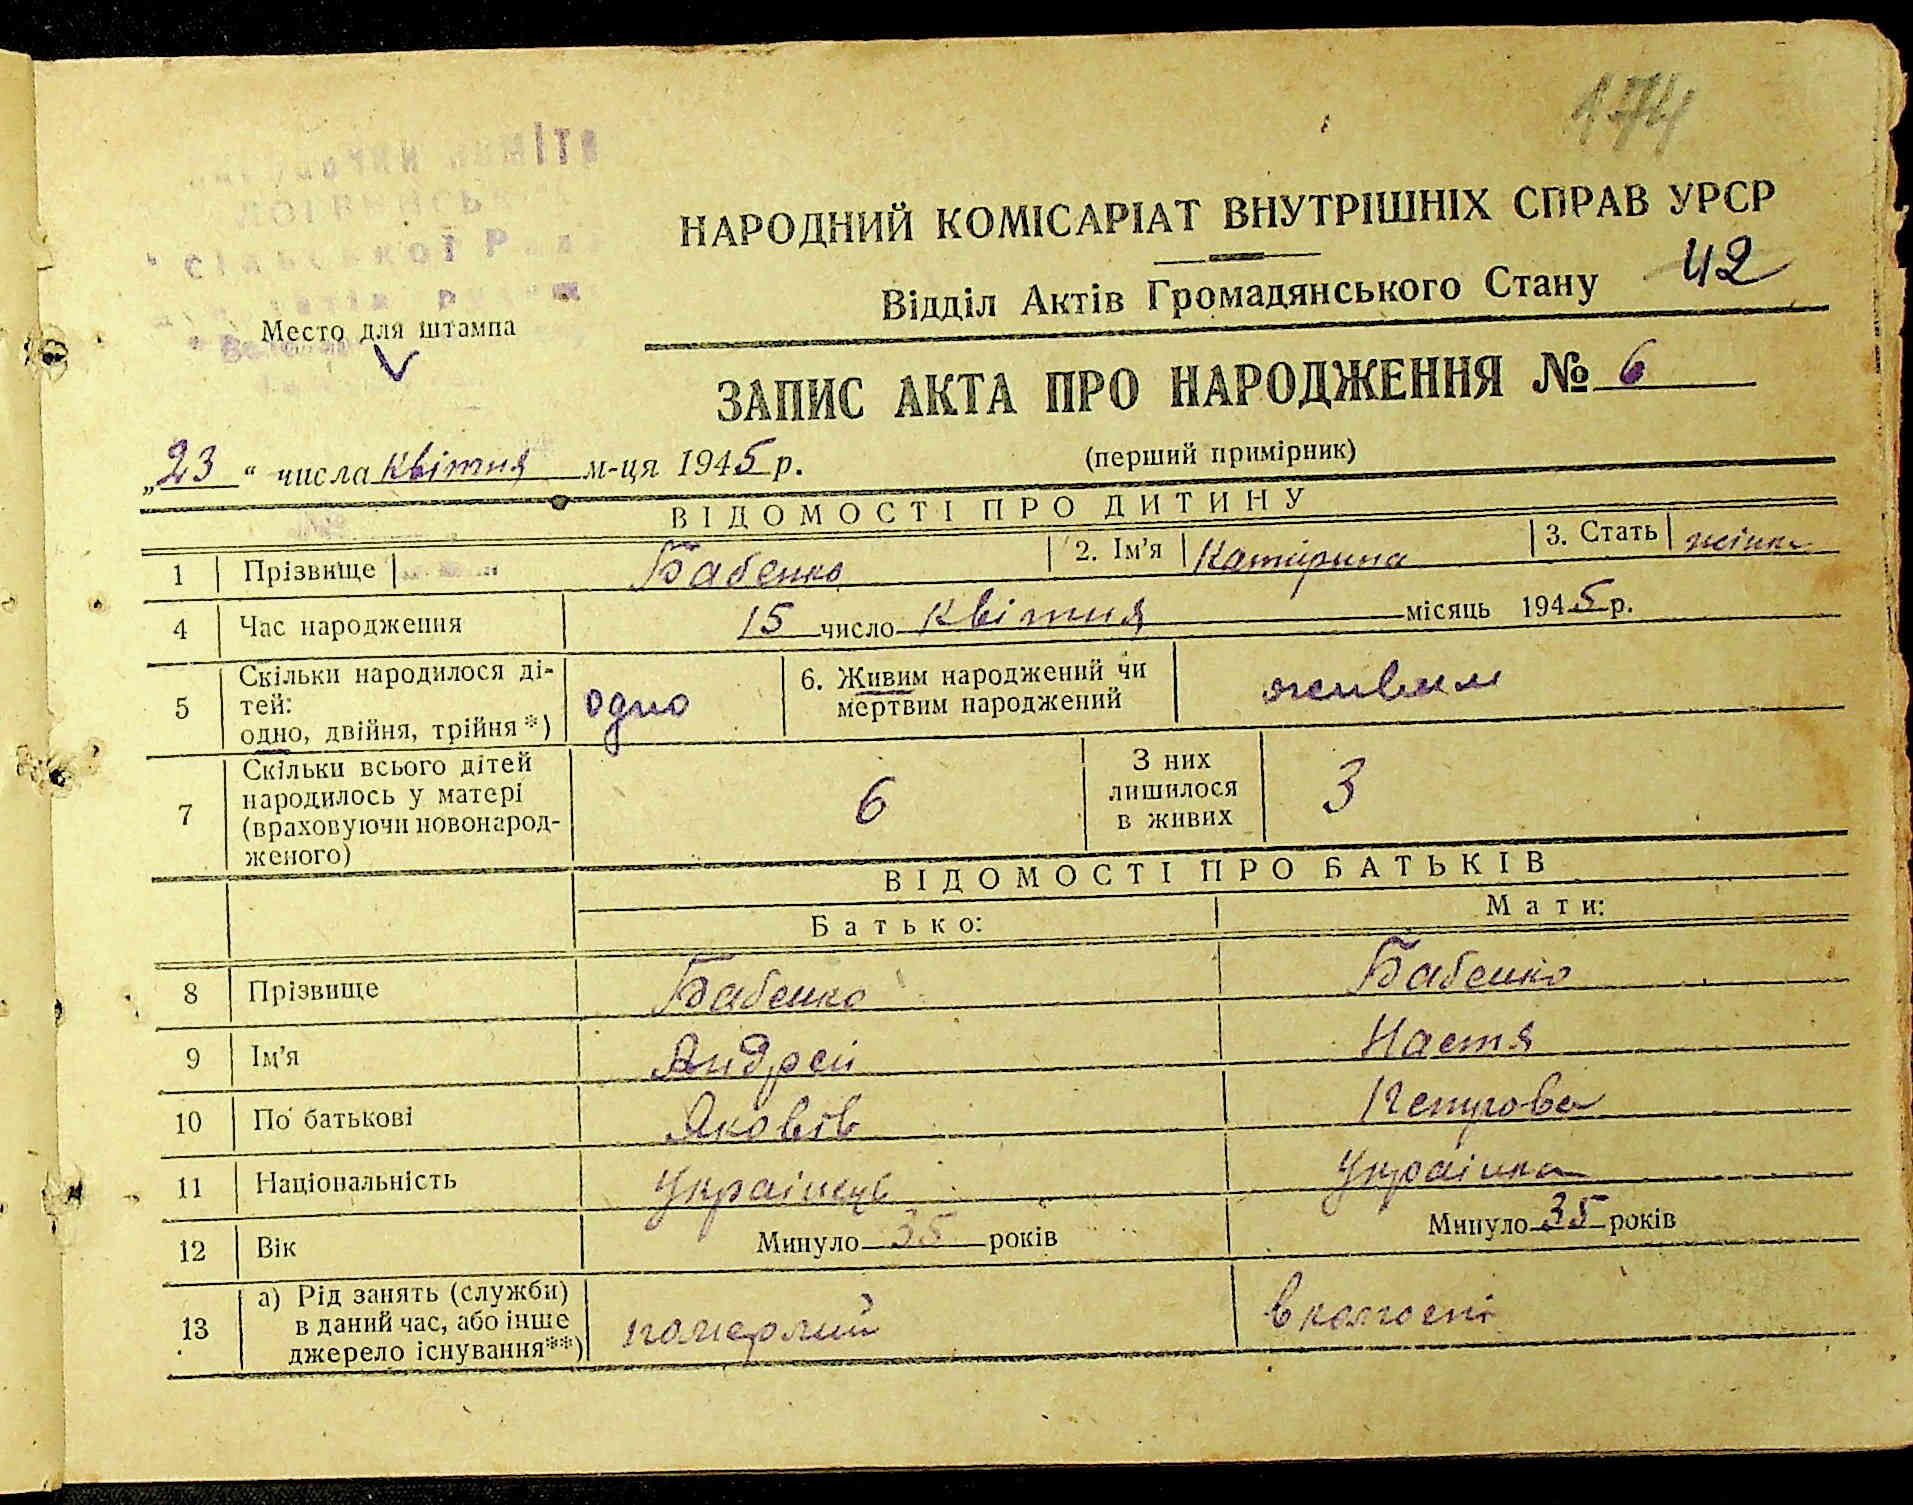 174
НАРОДНИЙ КОМІСАРІАТ ВНУТРІШНІХ СПРАВ УРСР
Відділ Актів Громадянського Стану 42
сільської Ради
Место для штампа
ЗАПИС АКТА ПРО НАРОДЖЕННЯ № 6
(перший примірник)
„23“ числа квітня м-ця 1945 р.
ВІДОМОСТІ ПРО ДИТИНУ
1 Прізвище Бабенко 2. Ім'я Катирина 3. Стать жінка
4 Час народження 15 число квітня місяць 1945 р.
5 Скільки народилося ді-
тей:
одно, двійня, трійня*) одно
6. Живим народжений чи
мертвим народжений живим
7 Скільки всього дітей
народилось у матері
(враховуючи новонарод-
женого) 6
З них
лишилося
в живих 3
ВІДОМОСТІ ПРО БАТЬКІВ
Батько: Мати:
8 Прізвище Бабенко Бабенко
9 Ім'я Андрей Настя
10 По батькові Яковів Петрова
11 Національність Українець Українка
12 Вік Минуло 35 років Минуло 35 років
13 а) Рід занять (служби)
в даний час, або інше
джерело існування**) померлий в колгоспі